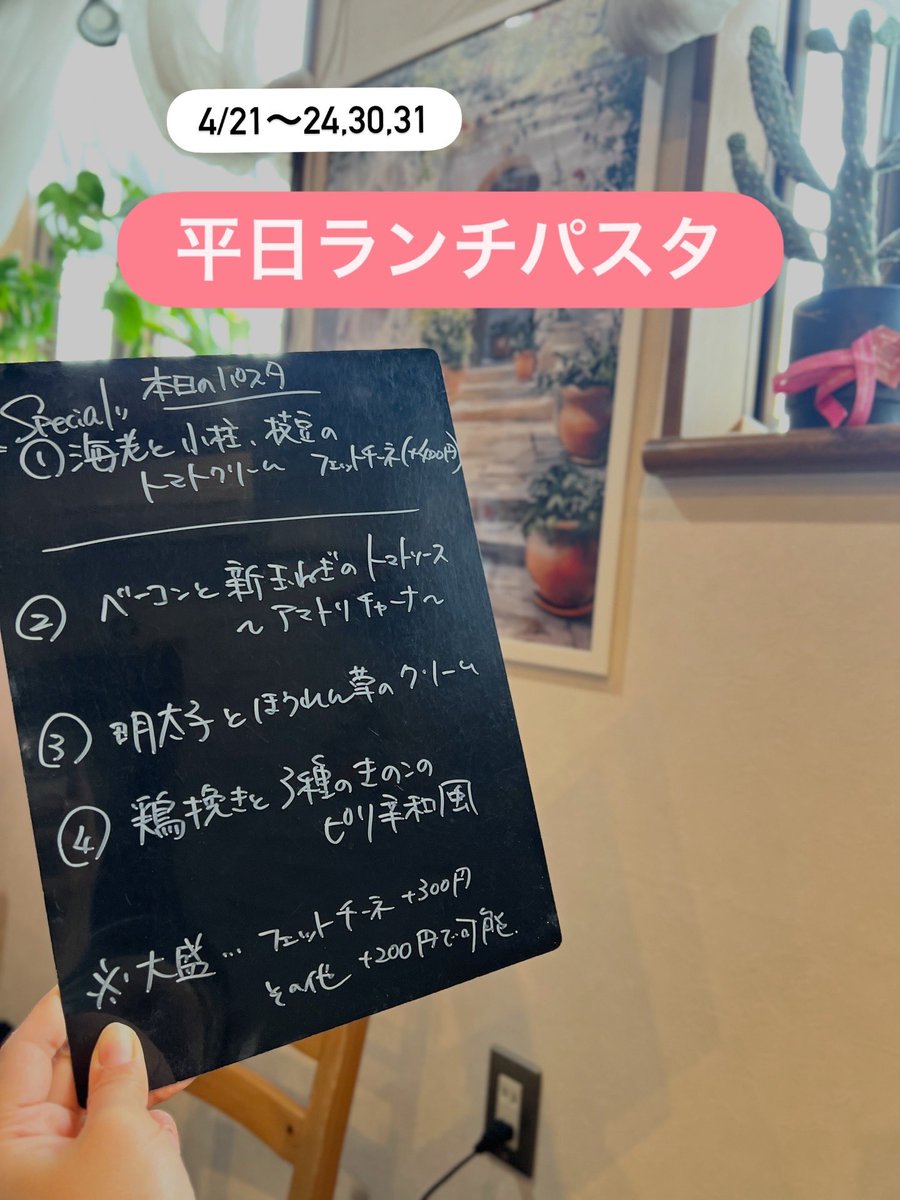 4/21〜24,30,31
平日ランチパスタ
Special!! 本日のパスタ
① 海老と小柱、枝豆の
トマトクリーム フェットチーネ(+400円)
② ベーコンと新玉ねぎのトマトソース
〜アマトリチャーナ〜
③ 明太子とほうれん草のクリーム
④ 鶏挽きと3種のきのこの
ピリ辛和風
※大盛… フェットチーネ +300円
その他 +200円で可能.